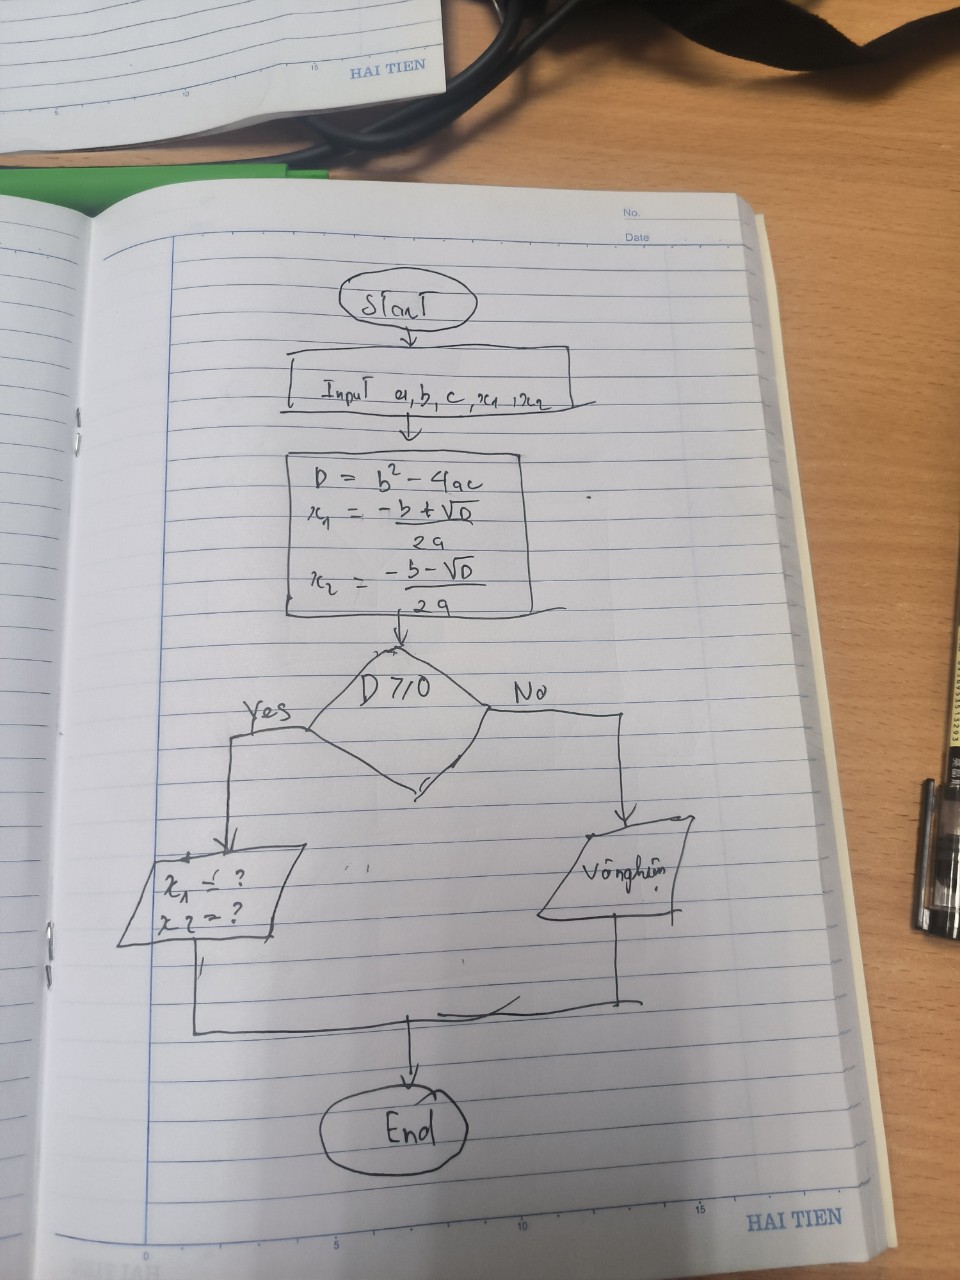 15
HAI TIEN
10
5
No.
Date
Start
Input a, b, c, x1, x2
D = b² - 4ac
x1 = -b + √D
2a
x2 = -b - √D
2a
D ⩾ 0
Yes
No
x1 = ?
x2 = ?
Vô nghiệm
End
0
5
10
15
HAI TIEN